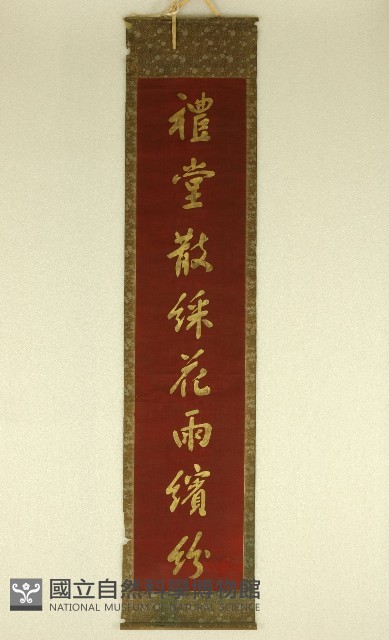 禮堂散綵花雨繽紛
國立自然科學博物館
NATIONAL MUSEUM OF NATURAL SCIENCE